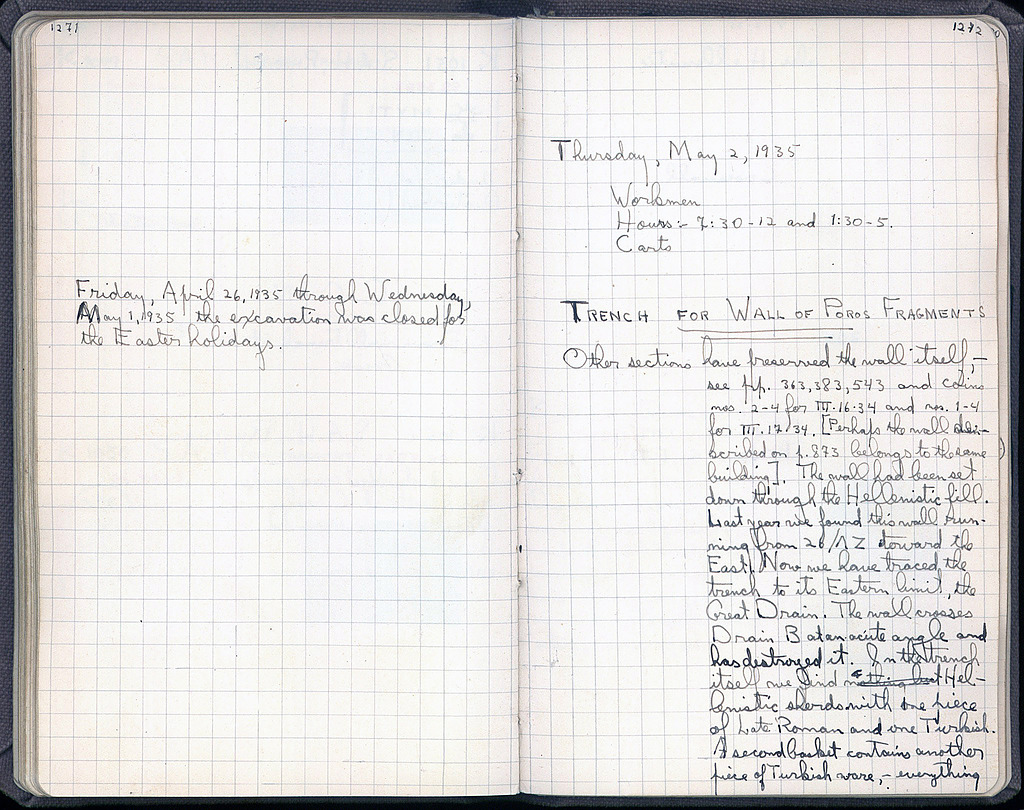 1271
Friday, April 26, 1935 through Wednesday,
May 1, 1935 the excavation was closed for
the Easter holidays.
1272
Thursday, May 2, 1935
Workmen
Hours:- 7:30-12 and 1:30-5.
Carts
TRENCH FOR WALL OF POROS FRAGMENTS
Other sections have preserved the wall itself,-
see pp. 363, 383, 543 and coins
nos. 2-4 for III·16·34 and nos. 1-4
for III·17·34. [Perhaps the wall de-
scribed on p. 873 belongs to the same
building]. The wall had been set
down through the Hellenistic fill.
Last year we found this wall run-
ning from 26/ΛΖ toward the
East. Now we have traced the
trench to its Eastern limit, the
Great Drain. The wall crosses
Drain B at an acute angle and
has destroyed it. In the trench
itself we find nothing but Hel-
lenistic sherds with one piece
of Late Roman and one Turkish.
A second basket contains another
piece of Turkish ware,- everything